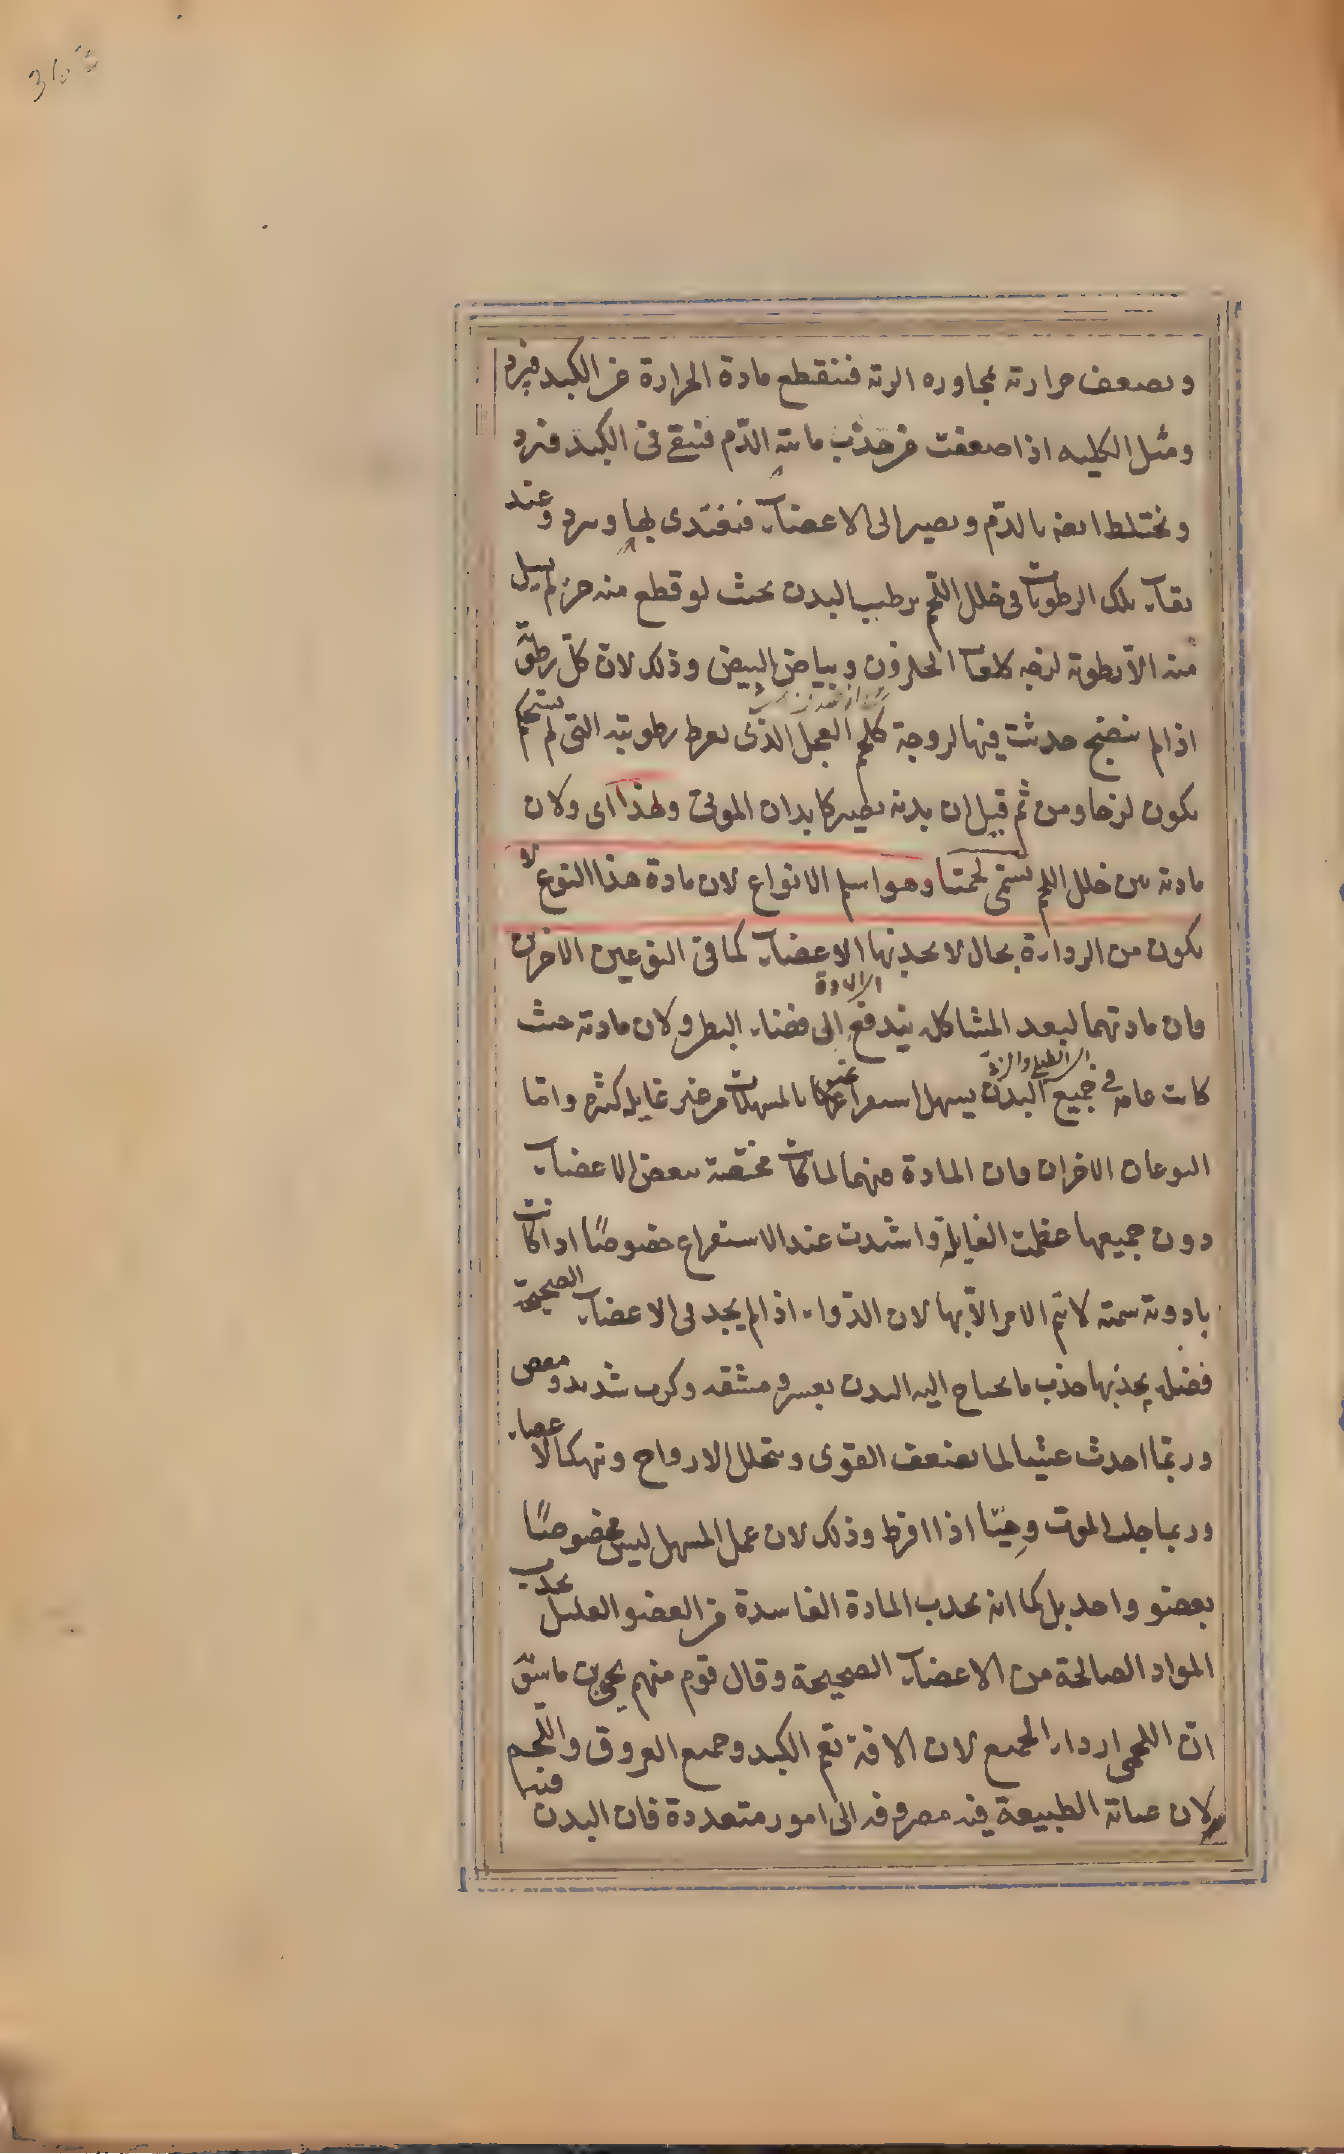 ويضعف حرارته بمجاوره الرئة فتنقطع مادة الحرارة عن الكبد فيبرد
ومثل الكليه اذا ضعفت عن جذب مائية الدّم فتبقى فى الكبد فتبرد
وتختلط ايضا بالدّم ويصير الى الاعضاء فتغتذى بها وتبرد وعند
بقاء تلك الرطوبات فى خلل اللّحم يرطب البدن بحيث لو قطع منه جزء لم يسل
منه الاّ رطوبة لزجه كلعاب الحلزون وبياض البيض وذلك لان كلّ رطوبة
اذا لم تنضج حدثت فيها لزوجة كلحم العجل الذى لفرط رطوبته التى لم تستحكم
يكون لزجا ومن ثم قيل ان بدنه يصير كابدان الموتى ولهذا اى ولان
مادته بين خلل اللحم يسمّى لحميّا وهو اسلم الانواع لان مادة هذا النوع لا
يكون من الرداءة بحال لا يجذبها الاعضاء كما فى النوعين الاخرين
فان مادتهما لبعد المشاكله يندفع الى فضاء البطن ولان مادته حيث
كانت عامه فى جميع البدن يسهل استفراغها بالمسهلات من غير غايله كثيره وامّا
النوعان الاخران فان المادة فيهما لما كانت مختصّة ببعض الاعضاء
دون جميعها عظمت الغايلة واشتدت عند الاستفراغ خصوصًا اذا كانت
بادوية سمية لا يتم الامر الاّ بها لان الدّواء اذا لم يجد فى الاعضاء الصحيحة
فضله يجذبها جذب ما يحتاج اليه البدن بعسر ومشقه وكرب شديد ومغص
وربّما احدث غشيا لما يضعف القوى ويتحلل الارواح وتهك الاعضاء
وربما جلب الموت وحيّا اذا افرط وذلك لان عمل المسهل ليس مخصوصًا
بعضو واحد بل كما انه يجذب المادة الفاسدة من العضو العليل يجذب
المواد الصالحة من الاعضاء الصحيحة وقال قوم منهم يحيى بن ماسويه
انّ اللحمى اردا الجميع لان الافة تعم الكبد وجميع العروق واللّحم
ولان عناية الطبيعة فيه مصروفه الى امور متعددة فان البدن فيها